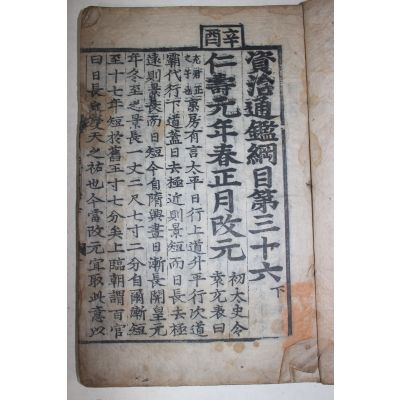 辛酉
資治通鑑綱目第三十六 下
仁壽元年春正月改元
初太史令
袁充表曰
充君正
之子也
京房有言太平日行上道升平行次道
霸代行下道蓋日去極近則景短而日長去極
遠則景長而日短今自隋興晝日漸長開皇元
年冬至之景長一丈二尺七寸二分自爾漸短
至十七年短於舊三寸七分矣上臨朝謂百官
曰日長之慶天之祐也今當改元宜取此意以